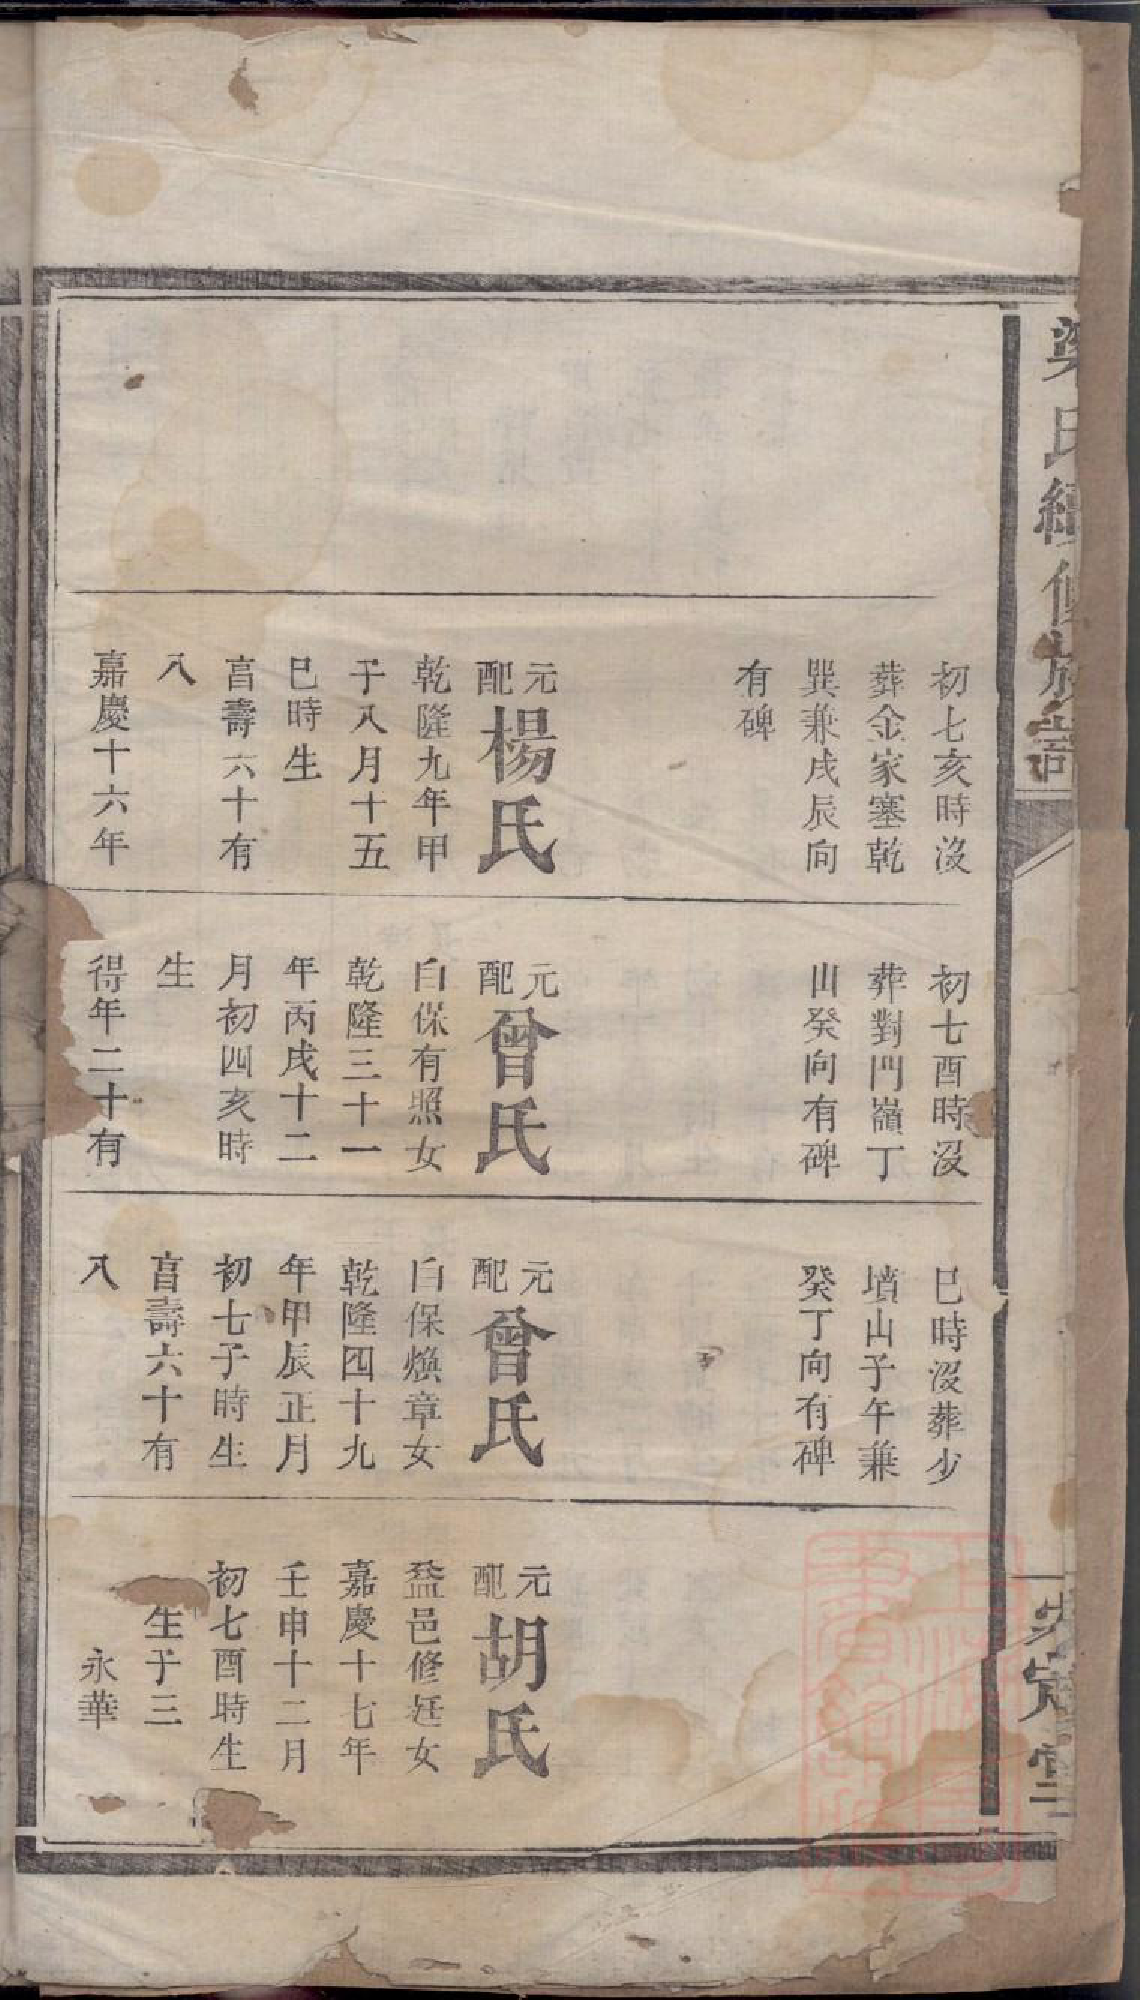 梁氏續修族譜
初七亥時沒
葬金家塞乾
巽兼戌辰向
有碑
元配楊氏
乾隆九年甲
子八月十五
巳時生
享壽六十有
八
嘉慶十六年
初七酉時沒
葬對門嶺丁
山癸向有碑
元配曾氏
白保有照女
乾隆三十一
年丙戌十二
月初四亥時
生
得年二十有
巳時沒葬少
墳山子午兼
癸丁向有碑
元配曾氏
白保煥章女
乾隆四十九
年甲辰正月
初七子時生
享壽六十有
八
元配胡氏
益邑修廷女
嘉慶十七年
壬申十二月
初七酉時生
生子三
永華
安定堂